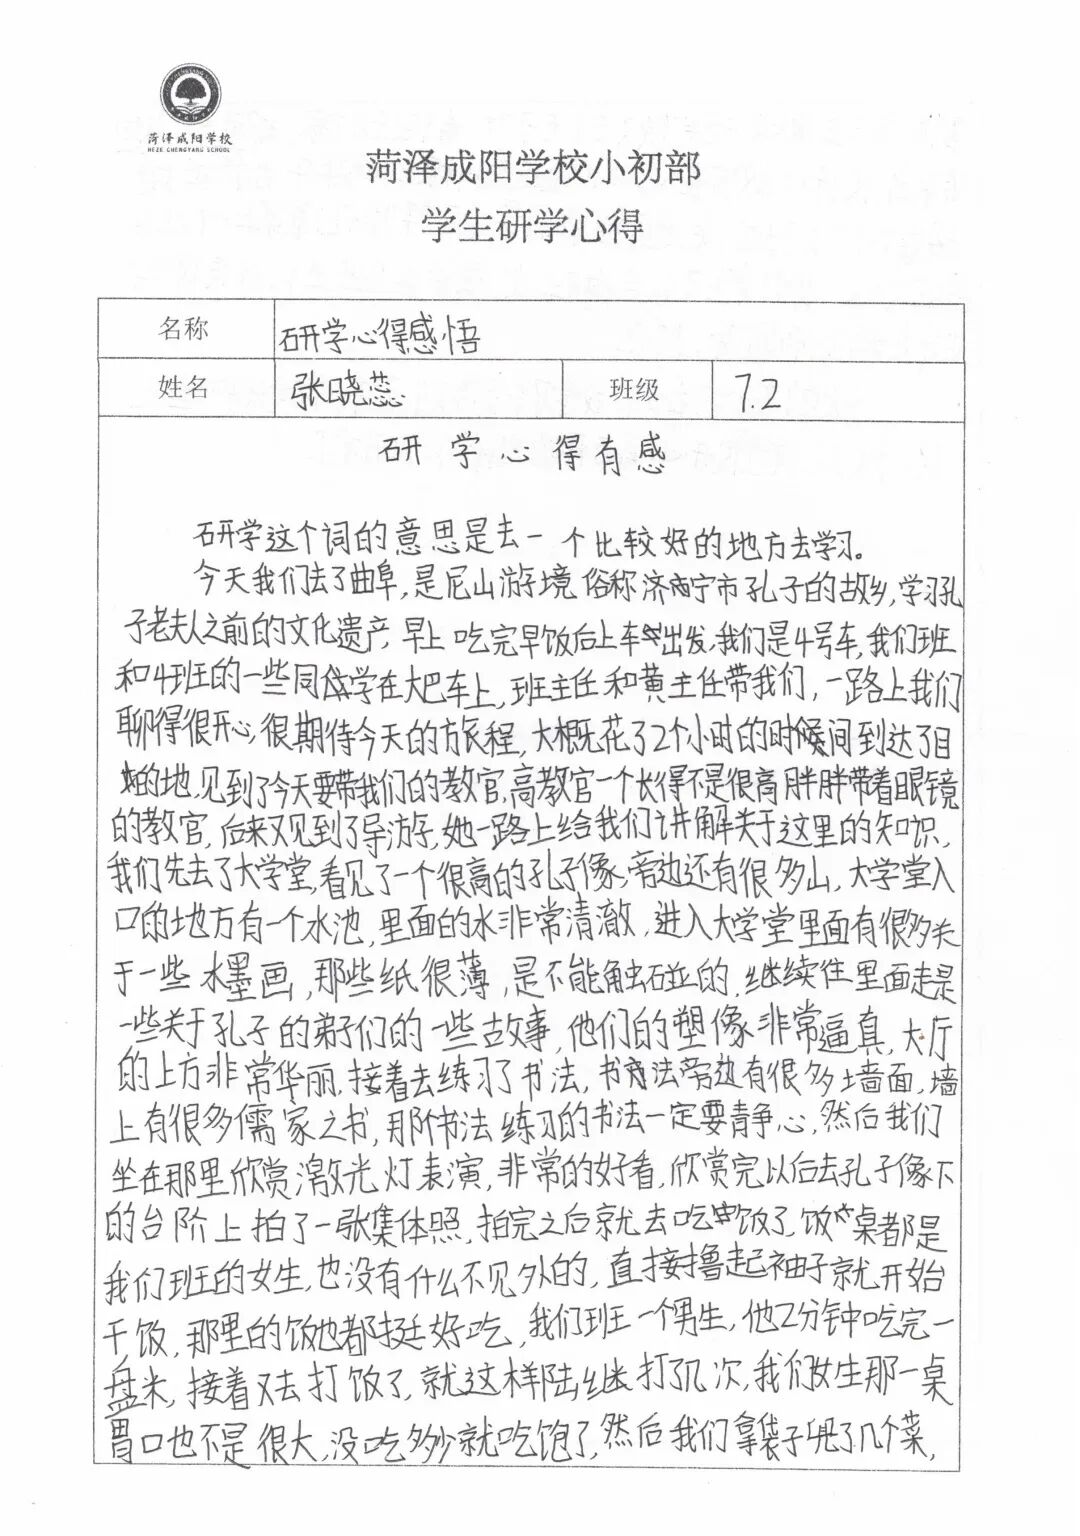 菏泽成阳学校
HEZE CHENGYANG SCHOOL
菏泽成阳学校小初部
学生研学心得
名称 研学心得感悟
姓名 张晓蕊 班级 7.2
研学心得有感
研学这个词的意思是去一个比较好的地方去学习。
今天我们去了曲阜,是尼山游境俗称济宁市孔子的故乡,学习孔
子老夫人之前的文化遗产,早上吃完早饭后上车出发,我们是4号车,我们班
和4班的一些同学在大巴车上,班主任和黄主任带我们,一路上我们
聊得很开心,很期待今天的旅程,大概花了2个小时的时间到达了目
的地,见到了今天要带我们的教官,高教官一个长得不是很高胖胖带着眼镜
的教官,后来又见到了导游,她一路上给我们讲解关于这里的知识,
我们先去了大学堂,看见了一个很高的孔子像,旁边还有很多山,大学堂入
口的地方有一个水池,里面的水非常清澈,进入大学堂里面有很多关
于一些水墨画,那些纸很薄,是不能触碰的,继续往里面走是
一些关于孔子的弟子们的一些故事,他们的塑像非常逼真,大厅
的上方非常华丽,接着去练习了书法,书法旁边有很多墙面,墙
上有很多儒家之书,那个书法练习的书法一定要静心,然后我们
坐在那里欣赏激光灯表演,非常的好看,欣赏完以后去孔子像下
的台阶上拍了一张集体照,拍完之后就去吃饭了,饭桌都是
我们班的女生,也没有什么不见外的,直接撸起袖子就开始
干饭,那里的饭也都挺好吃,我们班一个男生,他2分钟吃完一
盘米,接着又去打饭了,就这样陆继打了几次,我们女生那一桌
胃口也不是很大,没吃多少就吃饱了,然后我们拿袋子兜了几个菜,